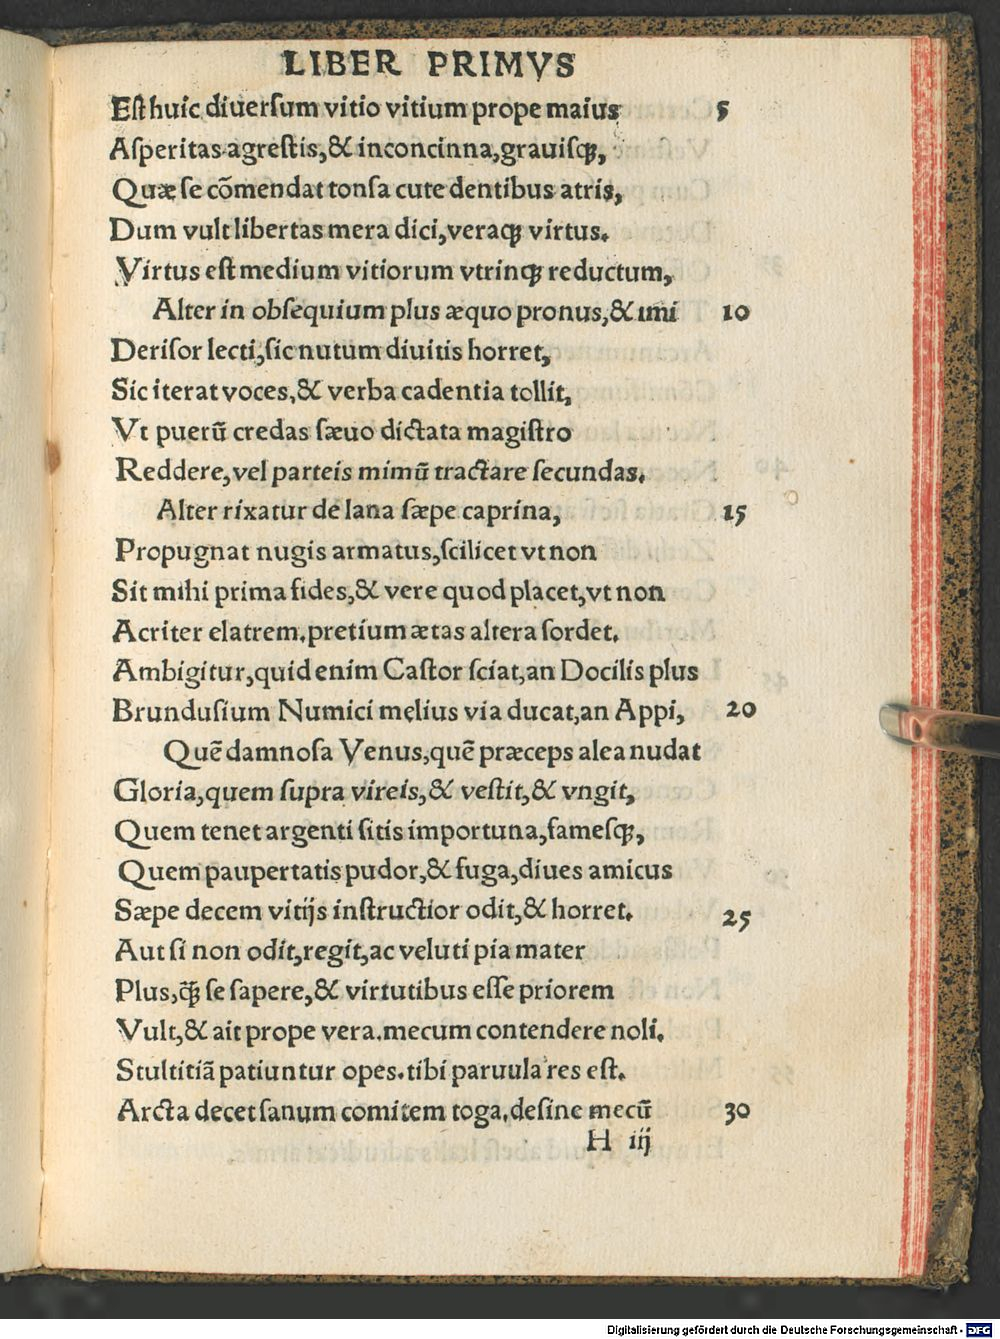 LIBER PRIMVS
Eſt huic diuerſum vitio vitium prope maius 5
Aſperitas agreſtis,& inconcinna,grauiſqꝫ,
Quæ ſe cõmendat tonſa cute dentibus atris,
Dum vult libertas mera dici,veraqꝫ virtus.
Virtus eſt medium vitiorum vtrinqꝫ reductum,
Alter in obſequium plus æquo pronus,& imi 10
Deriſor lecti,ſic nutum diuitis horret,
Sic iterat voces,& verba cadentia tollit,
Vt puerũ credas ſæuo dictata magiſtro
Reddere,vel parteis mimũ tractare ſecundas.
Alter rixatur de lana ſæpe caprina, 15
Propugnat nugis armatus,ſcilicet vt non
Sit mihi prima fides,& vere quod placet,vt non
Acriter elatrem.pretium ætas altera ſordet.
Ambigitur,quid enim Caſtor ſciat,an Docilis plus
Brunduſium Numici melius via ducat,an Appi, 20
Quẽ damnoſa Venus,quẽ præceps alea nudat
Gloria,quem ſupra vireis,& veſtit,& vngit,
Quem tenet argenti ſitis importuna,fameſqꝫ,
Quem paupertatis pudor,& fuga,diues amicus
Sæpe decem vitijs inſtructior odit,& horret. 25
Aut ſi non odit,regit,ac veluti pia mater
Plus,q̃ꝫ ſe ſapere,& virtutibus eſſe priorem
Vult,& ait prope vera.mecum contendere noli.
Stultitiã patiuntur opes.tibi paruula res eſt.
Arcta decet ſanum comitem toga.deſine mecũ 30
H iij
Digitalisierung gefördert durch die Deutsche Forschungsgemeinschaft - DFG